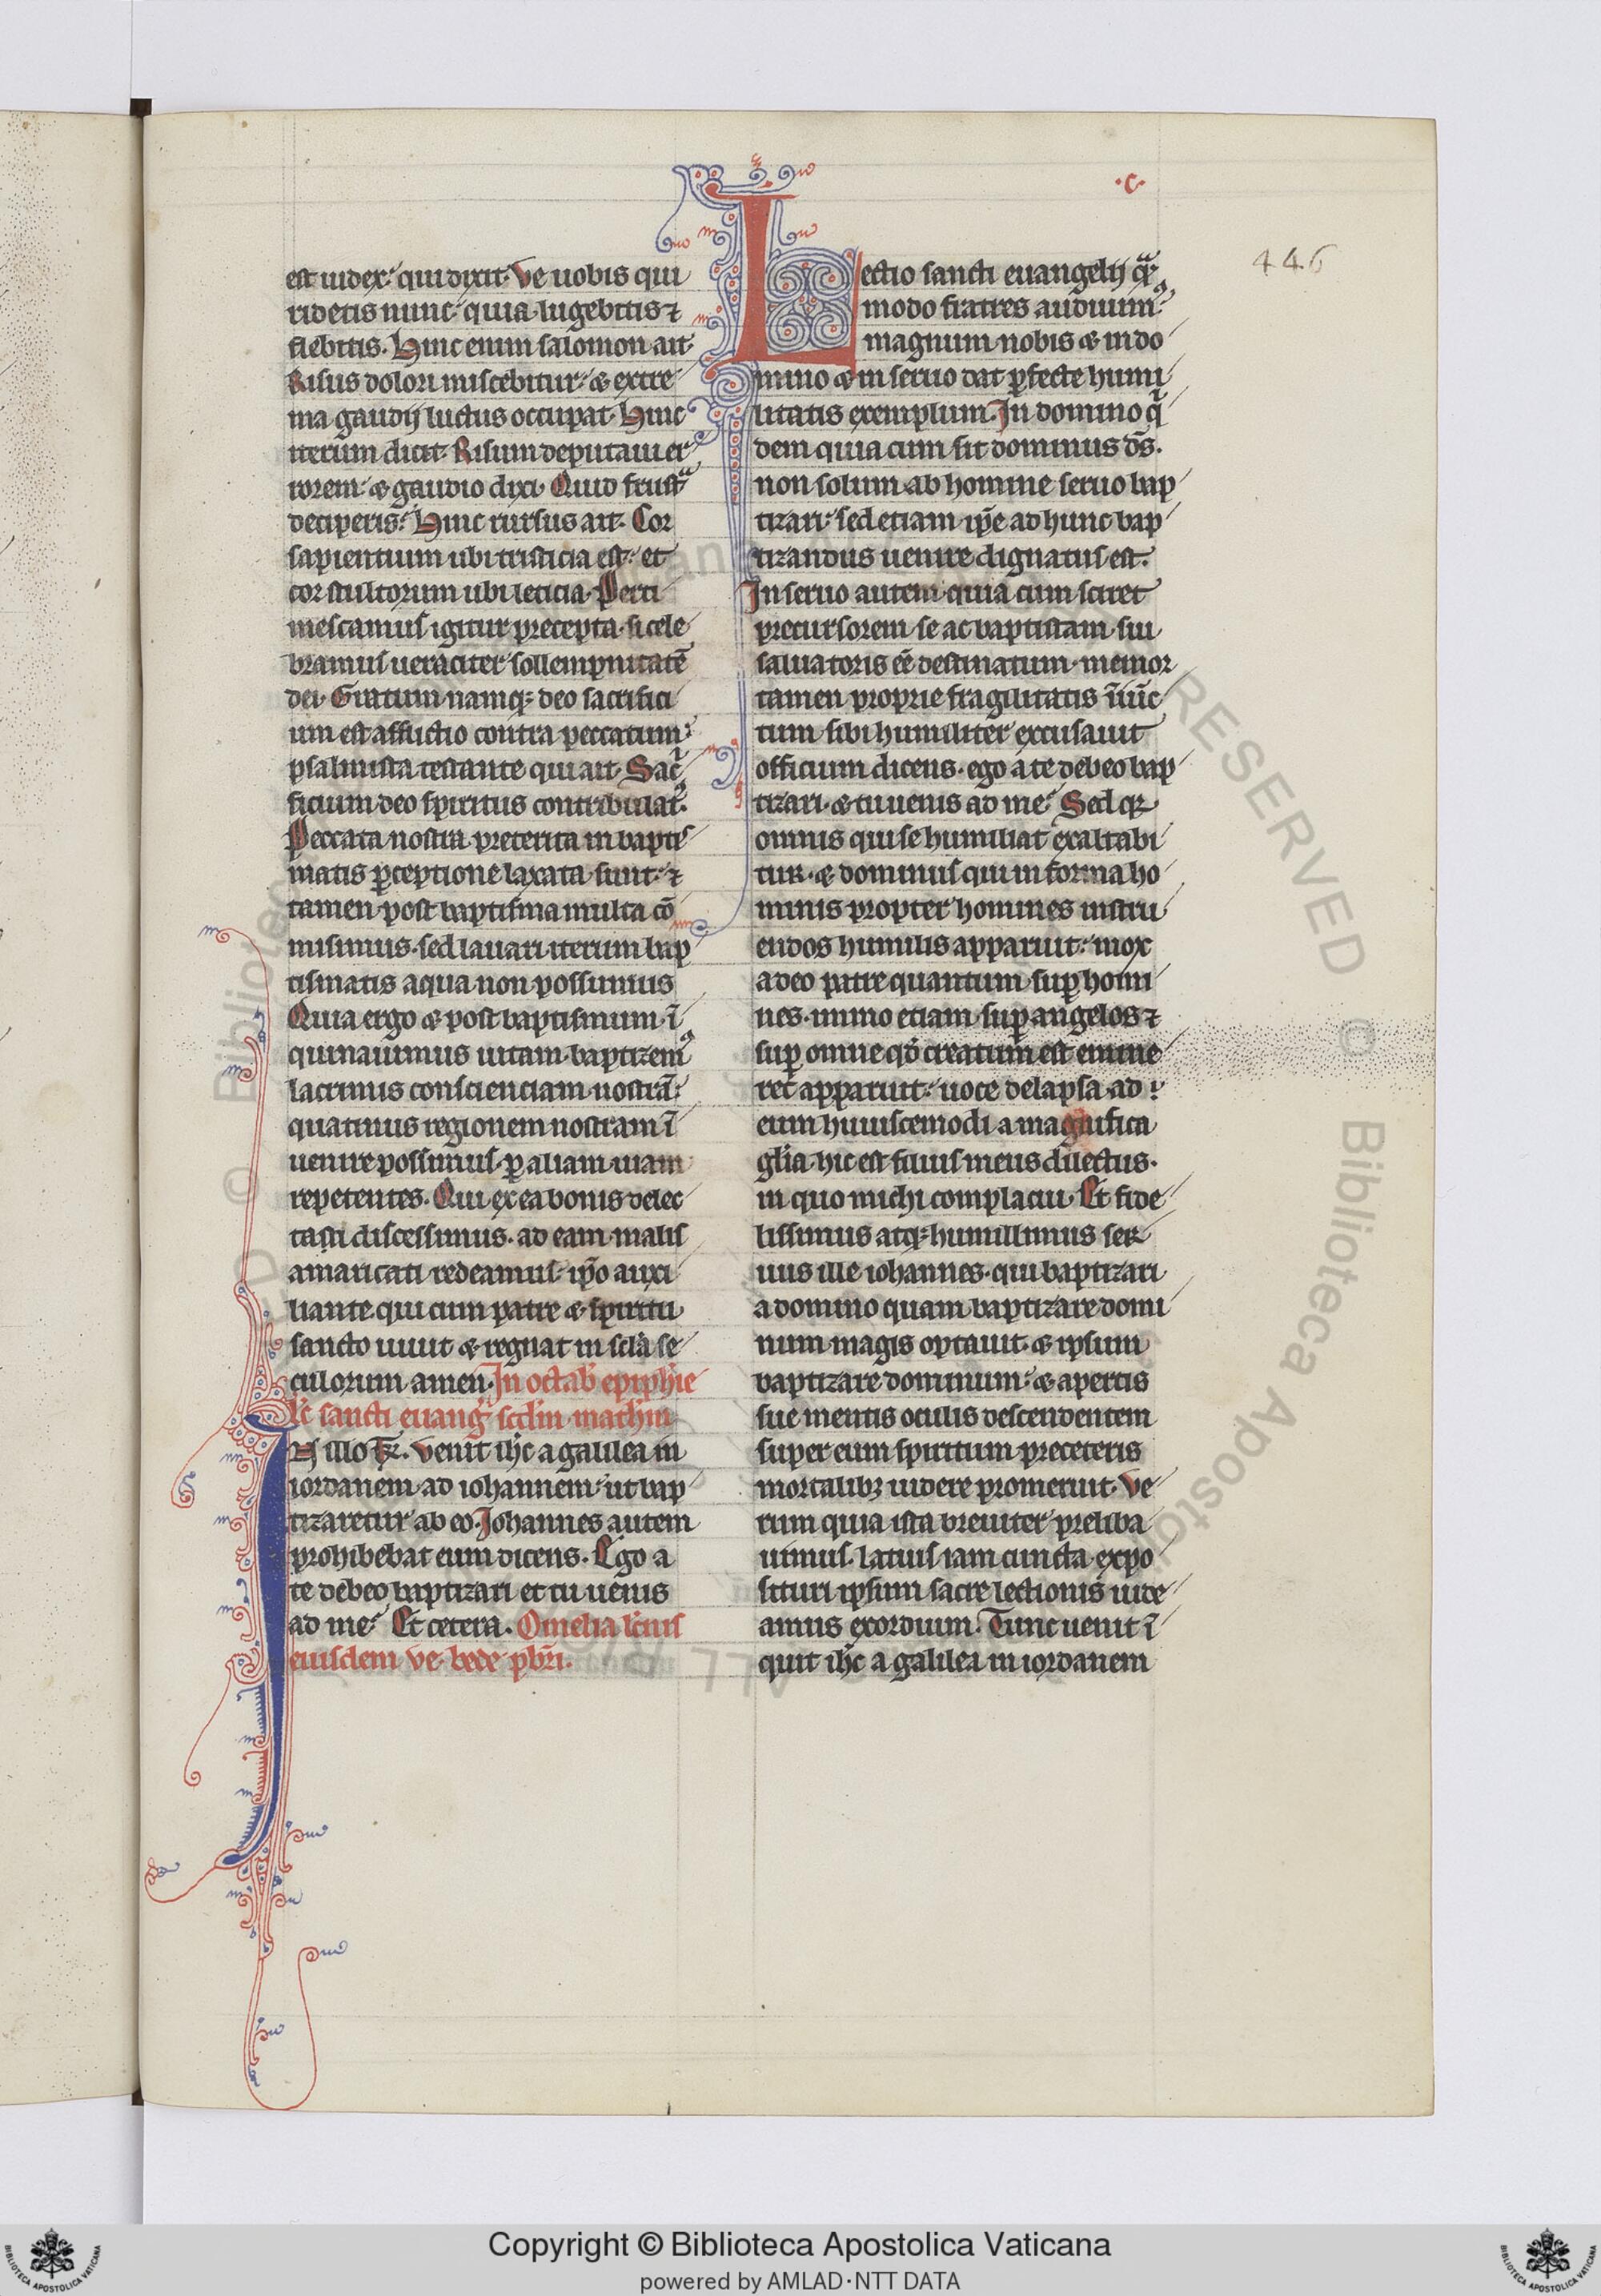 ·c·
446
est iudex: qui dixit. Ve uobis qui
ridetis nunc: quia lugebitis ⁊
flebitis. Hinc enim salomon ait
Risus dolori miscebitur: & extre
ma gaudij luctus occupat. Hinc
iterum dicit. Risum deputaui er
rorem: & gaudio dixi. Quid frustᵃ
deciperis? Hinc rursus ait. Cor
sapientium ubi tristicia est: et
cor stultorum ubi leticia. Perti
mescamus igitur precepta. si cele
bramus ueraciter sollempnitatē
dei. Gratum namqꝫ deo sacrifici
um est afflictio contra peccatum:
psalmista testante qui ait. Sacⁱ
ficium deo spiritus contribulatꝰ.
Peccata nostra preterita in baptis
matis ꝑceptione laxata sunt: ⁊
tamen post baptisma multa cō
misimus. sed lauari iterum bap
tismatis aqua non possumus
Quia ergo & post baptismum ī
quinauimus uitam. baptizemꝰ
lacrimis conscienciam nostrā:
quatinus regionem nostram ī
uenire possimus ꝑ aliam uiam
repetentes. Qui ex ea bonis delec
tati discessimus. ad eam malis
amaricati redeamus. ip̄o auxi
liante. qui cum patre & spiritu
sancto uiuit & regnat in scl̄a se
culorum amen. In octab̄ epiph̄ie
Lc̄ sancti euanḡ scd̄m math̄m
IN illo tꝑꝛ. Venit ih̄c a galilea in
iordanem ad iohannem: ut bap
tizaretur ab eo. Johannes autem
prohibebat eum dicens. Ego a
te debeo baptizari et tu uenis
ad me? Et cetera. Omelia lc̄nis
eiusdem ve. bede pb̄ri.
Lectio sancti euangelij qᵃ
modo fratres audiuimꝰ
magnum nobis & in do
mino & in seruo dat ꝑfecte humi
litatis exemplum. In domino qⁱ
dem quia cum sit dominus ds̄.
non solum ab homine seruo bap
tizari: sed etiam ip̄e ad hunc bap
tizandus uenire dignatus est.
In seruo autem. quia cum sciret
precursorem se ac baptistam sui
saluatoris eē destinatum. memor
tamen proprie fragilitatis īiūc
tum sibi humiliter excusauit
officium dicens. ego a te debeo bap
tizari. & tu uenis ad me? Sed qꝛ
omnis qui se humiliat exaltabi
tur. & dominus qui in forma ho
minis propter homines instru
endos humilis apparuit: mox
a deo patre quantum suꝑ homi
nes. immo etiam suꝑ angelos ⁊
suꝑ omne qd̄ creatum est emine
ret apparuit: uoce delapsa ad
eum huiuscemodi a magnifica
gl̄ia. hic est filius meus dilectus.
in quo michi complacui. Et fide
lissimus atqꝫ humillimus ser
uus ille iohannes. qui baptizari
a domino quam baptizare domi
num magis optauit. & ipsum
baptizare dominum: & apertis
sue mentis oculis descendentem
super eum spiritum pre ceteris
mortalibꝫ uidere promeruit. Ve
rum quia ista breuiter preliba
uimus. latius iam cuncta expo
situri ipsum sacre lectionis uide
amus exordium. Tunc uenit ī
quit ih̄c a galilea in iordanem
Copyright © Biblioteca Apostolica Vaticana
powered by AMLAD·NTT DATA